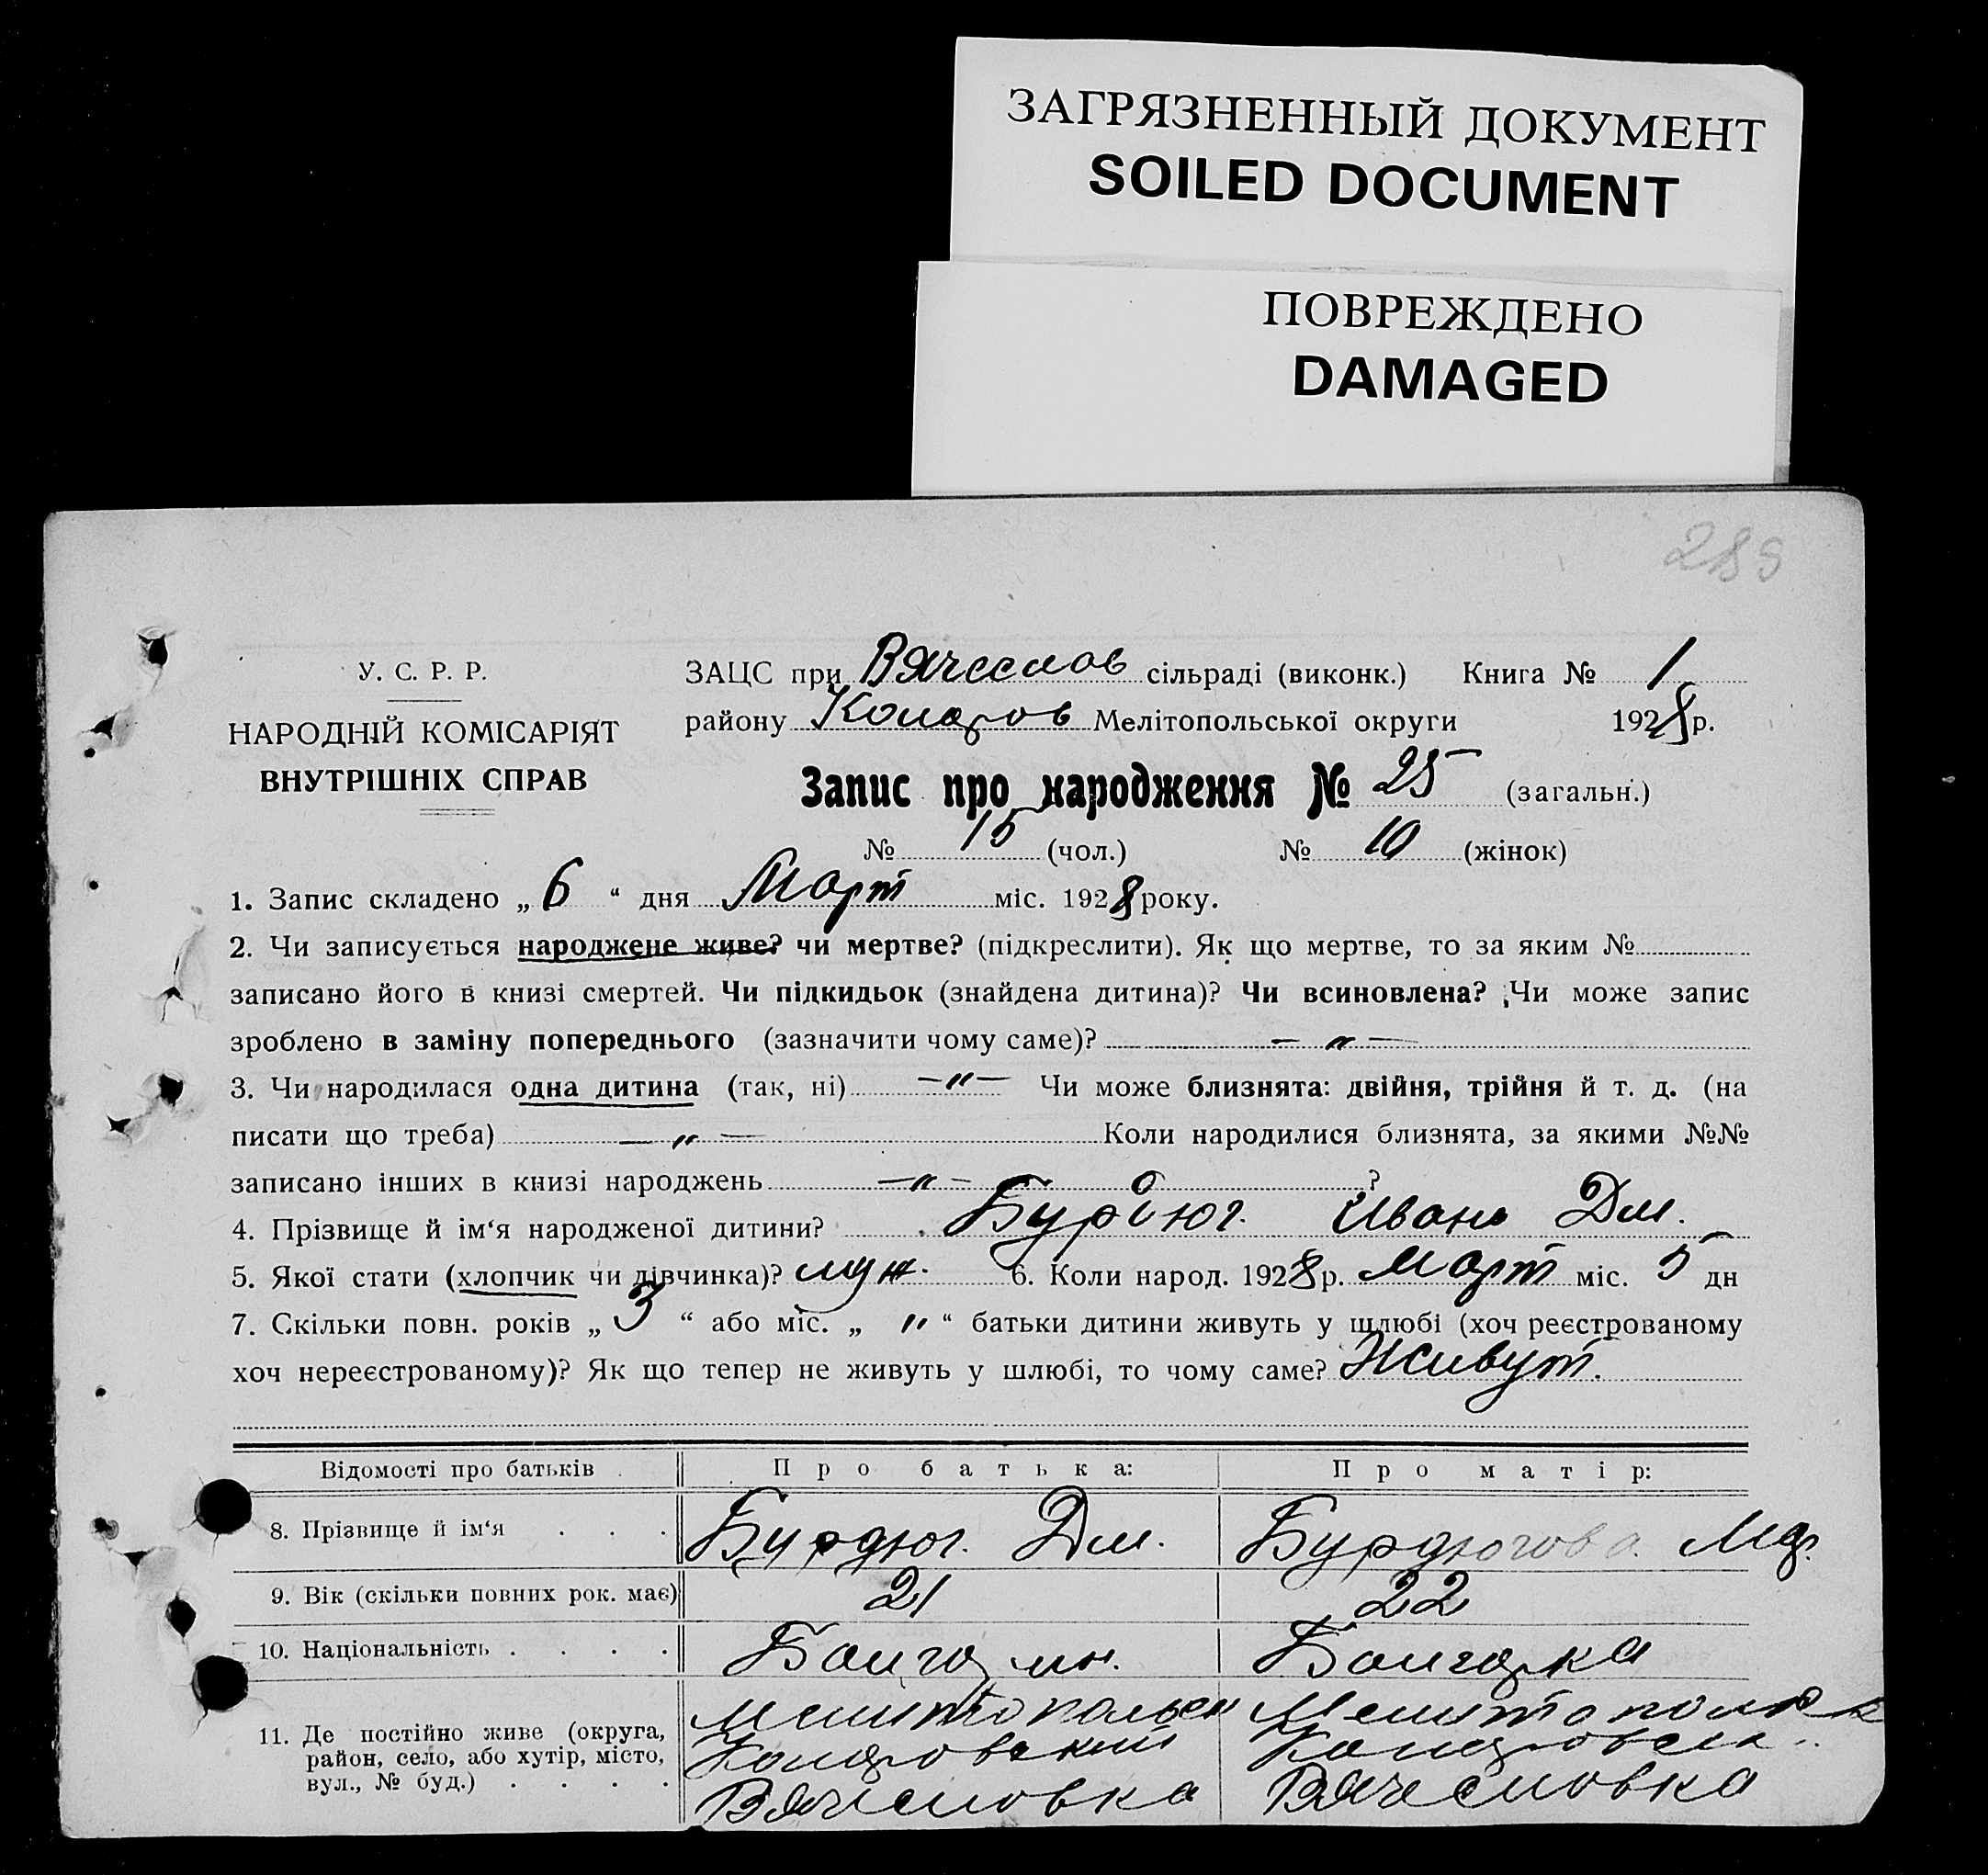 ЗАГРЯЗНЕННЫЙ ДОКУМЕНТ
SOILED DOCUMENT
ПОВРЕЖДЕНО
DAMAGED
289
У. С. Р. Р.
НАРОДНІЙ КОМІСАРІЯТ
ВНУТРІШНІХ СПРАВ
ЗАЦС при Вячеслов сільраді (виконк.) Книга № 1
району Коларов Мелітопольської округи 1928 р.
Запис про народження № 25 (загальн.)
№ 15 (чол.) № 10 (жінок)
1. Запис складено „ 6 “ дня Март міс. 1928 року.
2. Чи записується народжене живе? чи мертве? (підкреслити). Як що мертве, то за яким №
записано його в книзі смертей. Чи підкидьок (знайдена дитина)? Чи всиновлена? Чи може запис
зроблено в заміну попереднього (зазначити чому саме)? — „ —
3. Чи народилася одна дитина (так, ні) — „ — Чи може близнята: двійня, трійня й т. д. (на
писати що треба) — „ — Коли народилися близнята, за якими №№
записано інших в книзі народжень — „ — ?
4. Прізвище й ім‘я народженої дитини? Бурдюг. Иван Дм.
5. Якої стати (хлопчик чи дівчинка)? муж. 6. Коли народ. 1928 р. Март міс. 5 дн
7. Скільки повн. років „ 3 “ або міс. „ „ “ батьки дитини живуть у шлюбі (хоч реєстрованому
хоч нереєстрованому)? Як що тепер не живуть у шлюбі, то чому саме? Живут.
Відомості про батьків Про батька: Про матір:
8. Прізвище й ім‘я . . . Бурдюг. Дм. Бурдюгова. Мар.
9. Вік (скільки повних рок. має) 21 22
10. Національність . . . . Болгарин. Болгарка
11. Де постійно живе (округа, Мелитопольск Мелитопольск
район, село, або хутір, місто, Коларовский Коларовск..
вул., № буд.) . . . . Вячесловка Вячесловка